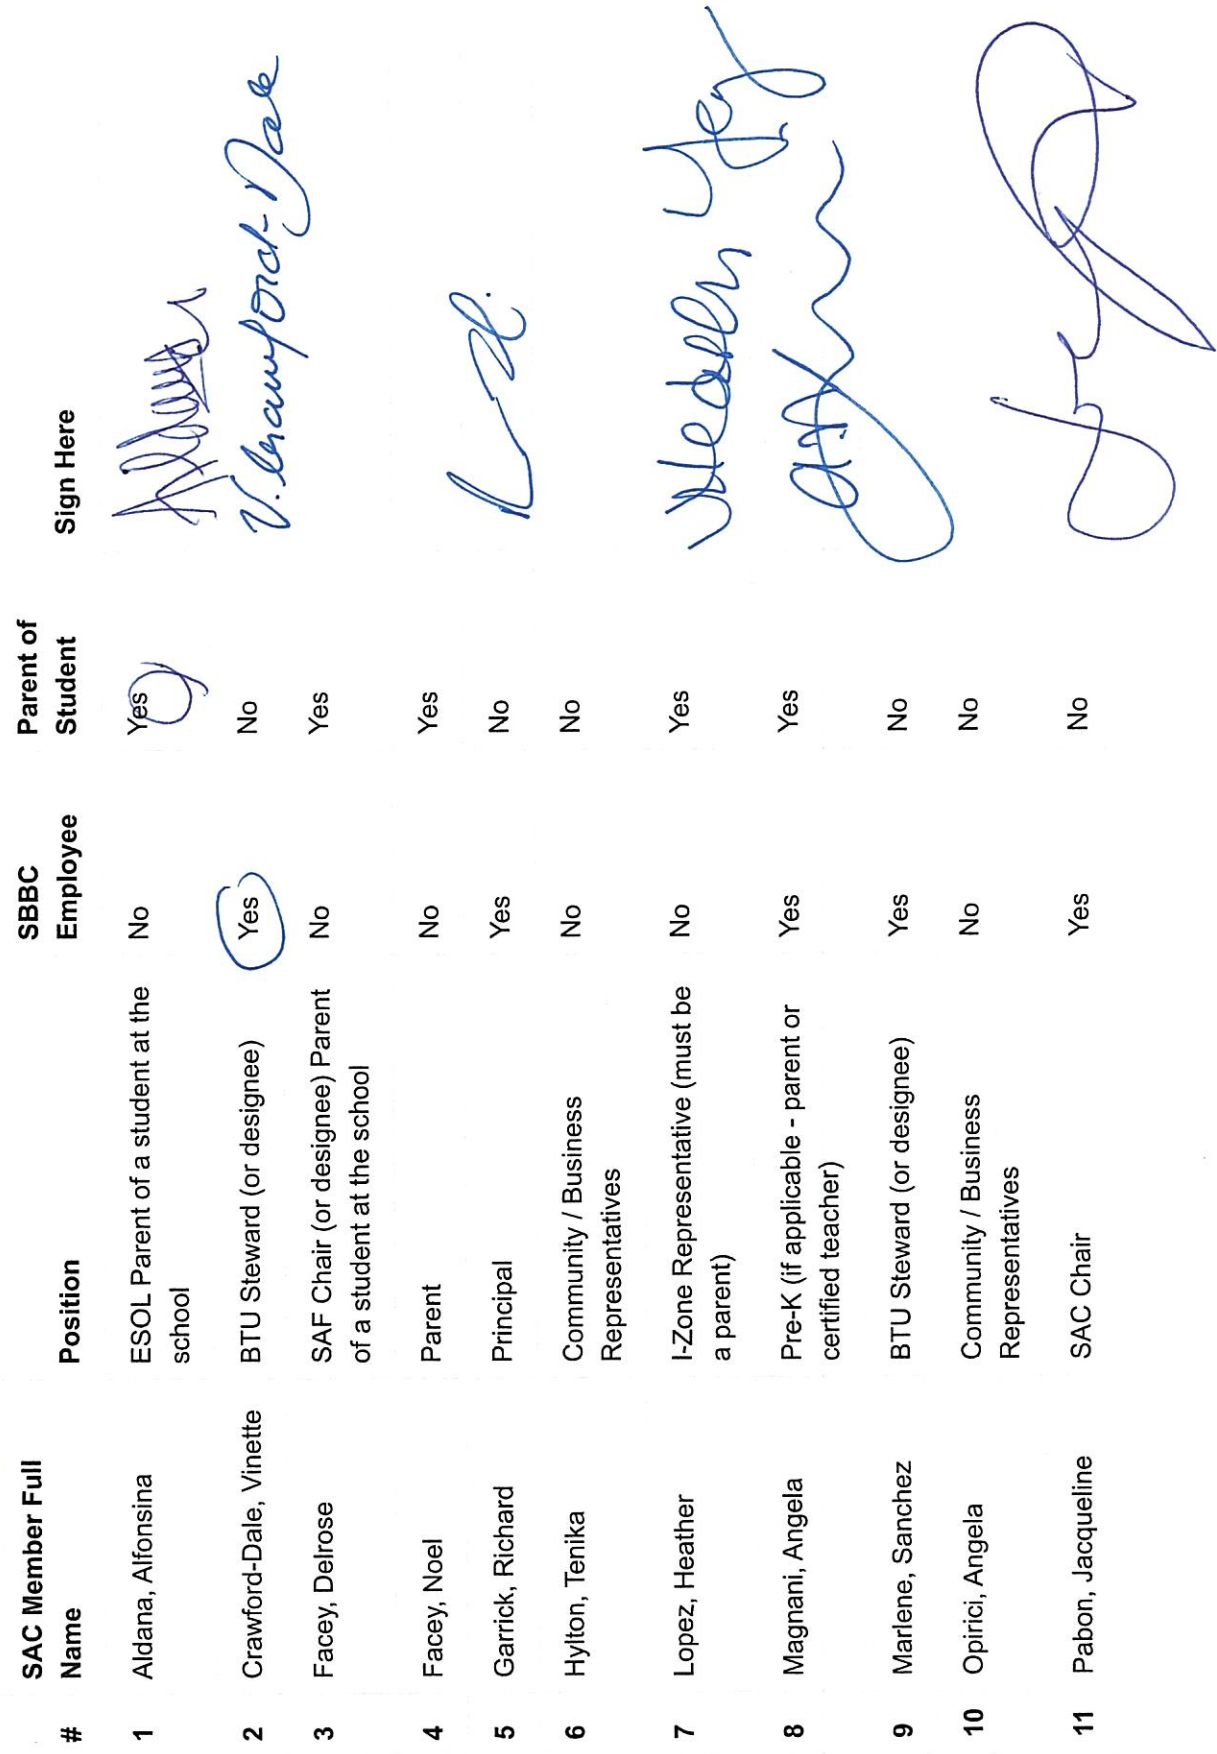 SAC Member Full SBBC Parent of
# Name Position Employee Student Sign Here
1 Aldana, Alfonsina ESOL Parent of a student at the No Yes
school
2 Crawford-Dale, Vinette BTU Steward (or designee) Yes No V. Crawford-Dale
3 Facey, Delrose SAF Chair (or designee) Parent No Yes
of a student at the school
4 Facey, Noel Parent No Yes
5 Garrick, Richard Principal Yes No
6 Hylton, Tenika Community / Business No No
Representatives
7 Lopez, Heather I-Zone Representative (must be No Yes
a parent)
8 Magnani, Angela Pre-K (if applicable - parent or Yes Yes
certified teacher)
9 Marlene, Sanchez BTU Steward (or designee) Yes No
10 Opirici, Angela Community / Business No No
Representatives
11 Pabon, Jacqueline SAC Chair Yes No